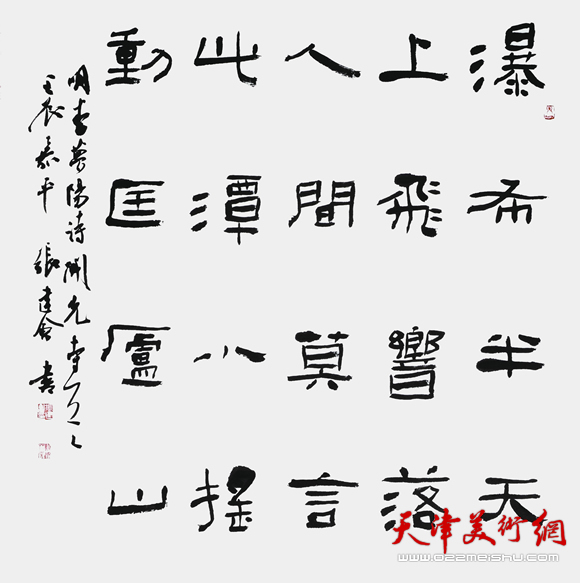 瀑布半天
上飛響落
人間莫言
此潭小搖
動匡廬山
明李夢陽詩開先寺
壬辰嘉平 張建會書
天津美術網
www.022meishu.com